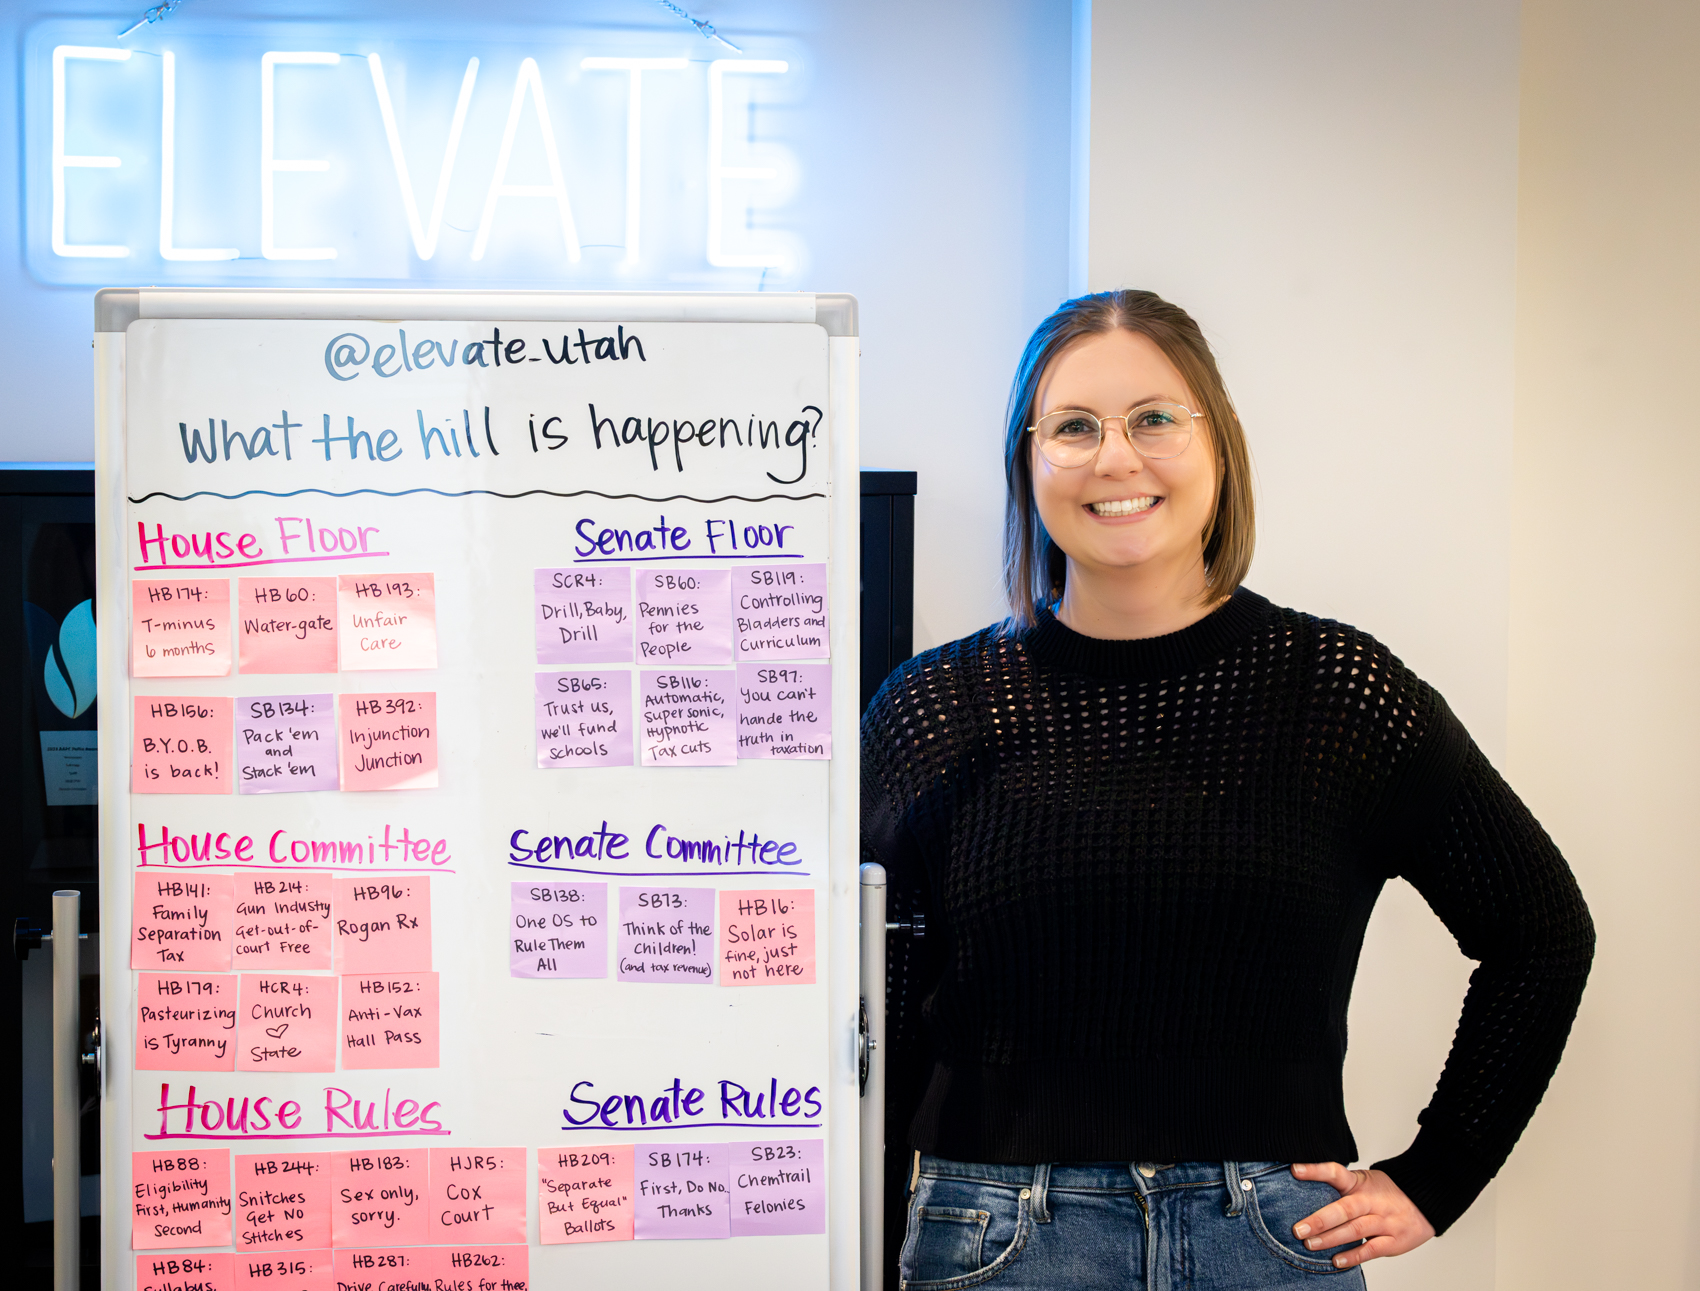 ELEVATE
@elevate_utah
What the hill is happening?
House Floor
HB174:
T-minus
6 months
HB60:
Water-gate
HB193:
Unfair
Care
HB156:
B.Y.O.B.
is back!
SB134:
Pack 'em
and
Stack 'em
HB392:
Injunction
Junction
Senate Floor
SCR4:
Drill, Baby,
Drill
SB60:
Pennies
for the
People
SB119:
Controlling
Bladders and
Curriculum
SB65:
Trust us,
we'll fund
schools
SB116:
Automatic,
Super sonic,
Hypnotic
Tax cuts
SB97:
You can't
hande the
truth in
taxation
House Committee
HB141:
Family
Separation
Tax
HB214:
Gun Industry
Get-out-of-
court Free
HB96:
Rogan Rx
HB179:
Pasteurizing
is Tyranny
HCR4:
Church
♡
State
HB152:
Anti-Vax
Hall Pass
Senate Committee
SB138:
One OS to
Rule Them
All
SB73:
Think of the
Children!
(and tax revenue)
HB16:
Solar is
fine, just
not here
House Rules
HB88:
Eligibility
First, Humanity
Second
HB244:
Snitches
Get No
Stitches
HB183:
Sex only,
sorry.
HJR5:
Cox
Court
HB84:
Syllabus,
HB315:
HB287:
Drive Carefully,
HB262:
Rules for thee,
Senate Rules
HB209:
"Separate
But Equal"
Ballots
SB174:
First, Do No
Thanks
SB23:
Chemtrail
Felonies